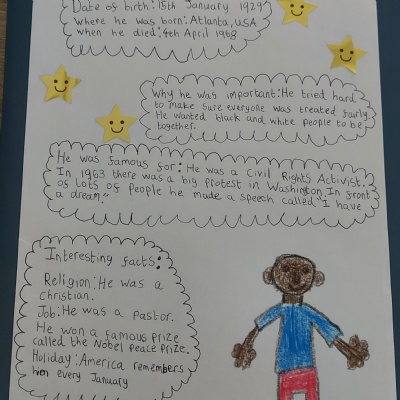 Date of birth: 15th January 1929
where he was born: Atlanta, USA
when he died: 4th April 1968
Why he was important: He tried hard
to make sure everyone was treated fairly.
He wanted black and white people to be
together.
He was famous for: He was a Civil Rights Activist.
In 1963 there was a big protest in Washington. In front
of lots of people he made a speech called "I have
a dream."
Interesting facts:
Religion: He was a
christian.
Job: He was a Pastor.
He won a famous prize
called the Nobel peace prize.
Holiday: America remembers
him every January